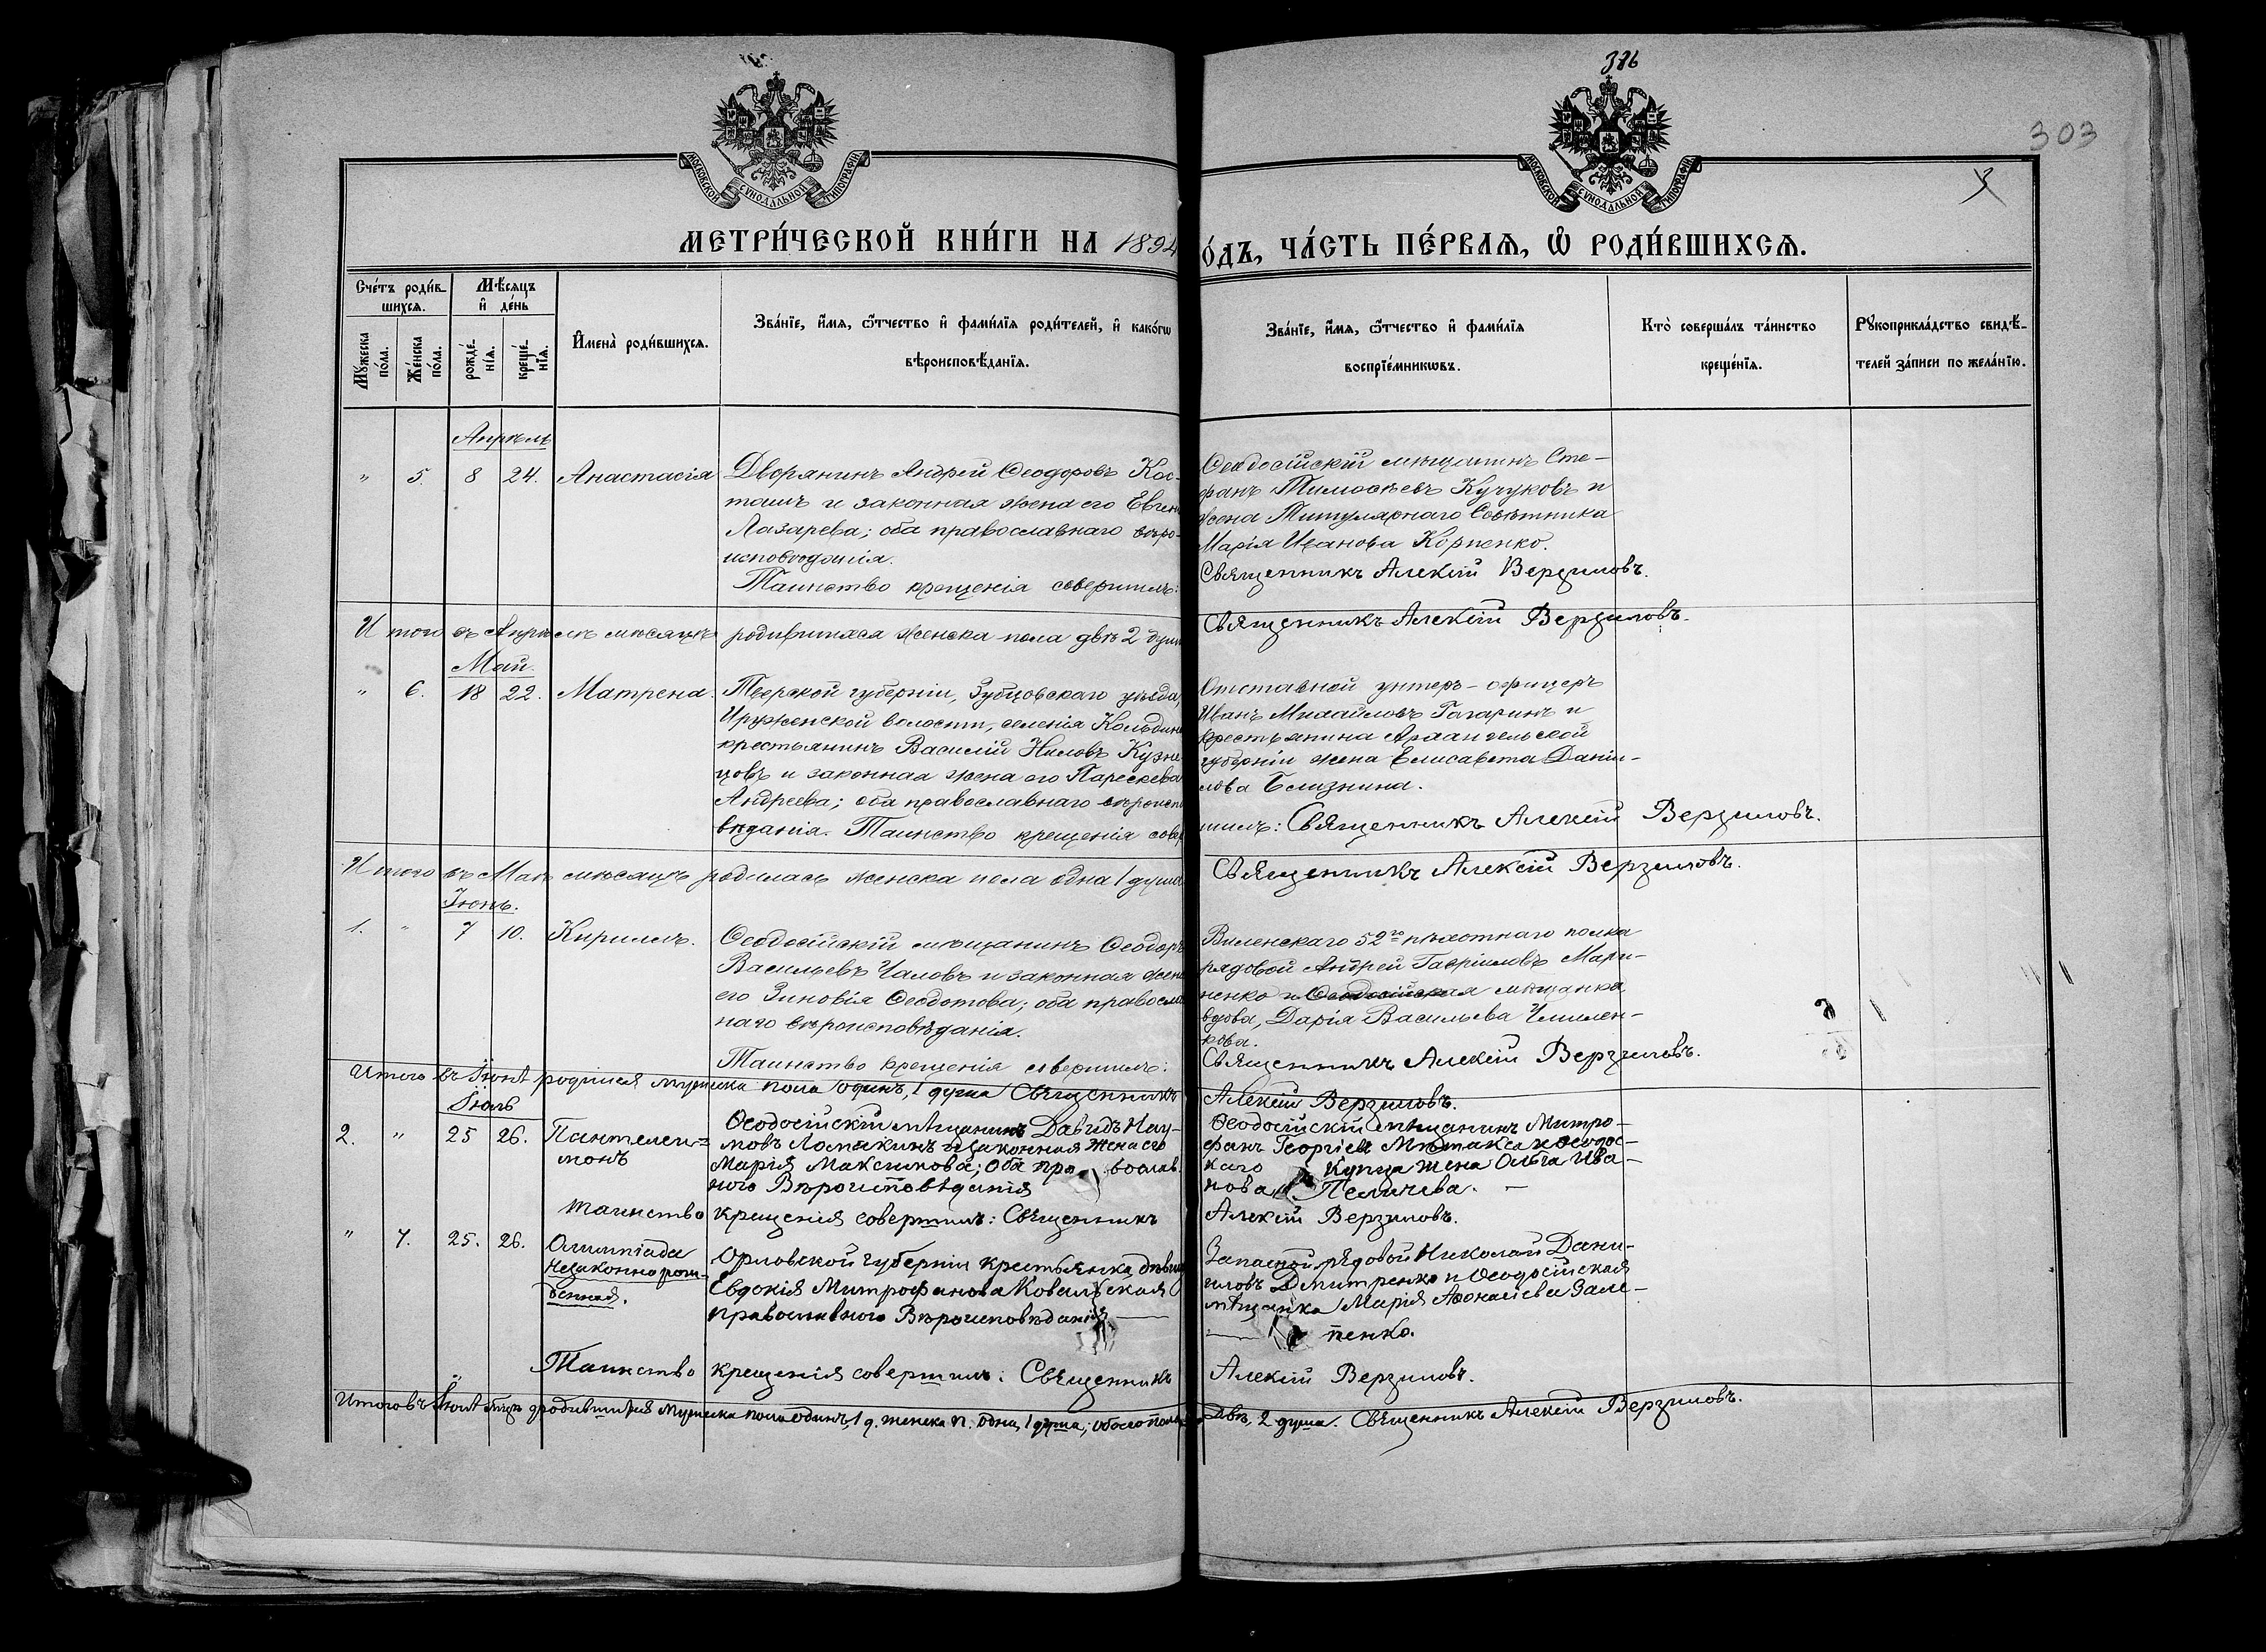 376
303
МОСКОВСКОЙ СѴНОДАЛЬНОЙ ТИПОГРАФІИ
МОСКОВСКОЙ СѴНОДАЛЬНОЙ ТИПОГРАФІИ
МЕТРИ́ЧЕСКОЙ КНИ́ГИ НА 1894
О́ДЪ, ЧА́СТЬ ПЕ́РВАѦ, Ѡ҆ РОДИ́ВШИХСѦ.
Сче́тъ роди́в-
шихсѧ.
Мꙋ́жеска по́ла.
Же́нска по́ла.
Мѣ́сѧцъ
и҆ де́нь
рожде́-
нїѧ.
креще́-
нїѧ.
И҆мена̀ роди́вшихсѧ.
Зва́нїе, и҆́мѧ, ѻ҆́тчество и҆ фами́лїѧ роди́телей, и҆ како́гѡ
вѣроисповѣ́данїѧ.
Зва́нїе, и҆́мѧ, ѻ҆́тчество и҆ фами́лїѧ
воспрїе́мникѡвъ.
Кто̀ соверша́лъ та́инство
креще́нїѧ.
Рꙋкоприкла́дство свидѣ́-
телей за́писи по жела́нїю.
Апрѣль
" 5. 8 24. Анастасія
Дворянинъ Андрей Ѳеодоровъ Кос-
ташъ и законная жена его Евген
Лазарева; оба православнаго вѣро-
исповѣданія.
Таинство крещенія совершилъ:
Ѳеодосійскій мѣщанинъ Сте-
фанъ Тимоѳеевъ Кучуковъ и
жена Титулярнаго Совѣтника
Марія Иванова Корпенко.
Священникъ Алексій Верзиловъ.
Итого въ Апрѣлѣ мѣсяцѣ родившихся женска пола двѣ 2 души
Священникъ Алексій Верзиловъ.
Май.
" 6. 18 22. Матрена.
Тверской губерніи, Зубцовскаго уѣзда,
волости, селенія
крестьянинъ Василій Ниловъ Кузне
цовъ и законная жена его Параскева
Андреева; оба православнаго вѣроиспо
вѣданія. Таинство крещенія совер
Отставной унтеръ-офицеръ
Иванъ Михайловъ Гагаринъ и
крестьянина Архангельской
губерніи жена Елисавета Даніи-
лова Близнина.
шилъ: Священникъ Алексій Верзиловъ.
Итого въ Маѣ мѣсяцѣ родилась женска пола одна 1 душа
Священникъ Алексій Верзиловъ.
Іюнь.
1. " 7 10. Кириллъ.
Ѳеодосійскій мѣщанинъ Ѳеодоръ
Васильевъ Чаловъ и законная жена
его Зиновія Ѳеодотова; оба православ
наго вѣроисповѣданія.
Таинство крещенія совершилъ:
Виленскаго 52го пѣхотнаго полка
рядовой Андрей Гавріиловъ Мари-
ненко и Ѳеодосійская мѣщанка
вдова, Дарія Васильева Чмилен-
кова.
Священникъ Алексій Верзиловъ.
Итого въ Іюнѣ родился мужеска пола одинъ, 1 душа Священникъ
Алексій Верзиловъ.
Іюль
2. " 25 26. Пантелеи-
монъ
Ѳеодосійскій мѣщанинъ Давидъ Нау-
мовъ Ломакинъ и законная жена его
Марія Максимова; оба православ-
наго Вѣроисповѣданія
Таинство крещенія совершилъ: Священникъ
Ѳеодосійскій мѣщанинъ Митро-
фанъ Георгіевъ Митакса и Ѳеодос-
каго Купца жена Ольга Ива-
нова Пеличева. —
Алексій Верзиловъ.
" 7. 25. 26. Олимпіада
незаконнорож-
денная.
Орловской губерніи крестьянка, дѣвица
Евдокія Митрофанова Ковальская
православнаго Вѣроисповѣданія —
Запасной рядовой Николай Дани-
иловъ Дмитренко и Ѳеодосійская
мѣщанка Марія Аѳонасіева Зале-
— пенко.
Таинство крещенія совершилъ: Священникъ
Алексій Верзиловъ.
Итого въ Іюлѣ мѣсяцѣ родившихся мужеска пола одинъ, 1 д. женска п. одна, 1 душа; обоего пола
двѣ, 2 душа. Священникъ Алексій Верзиловъ.